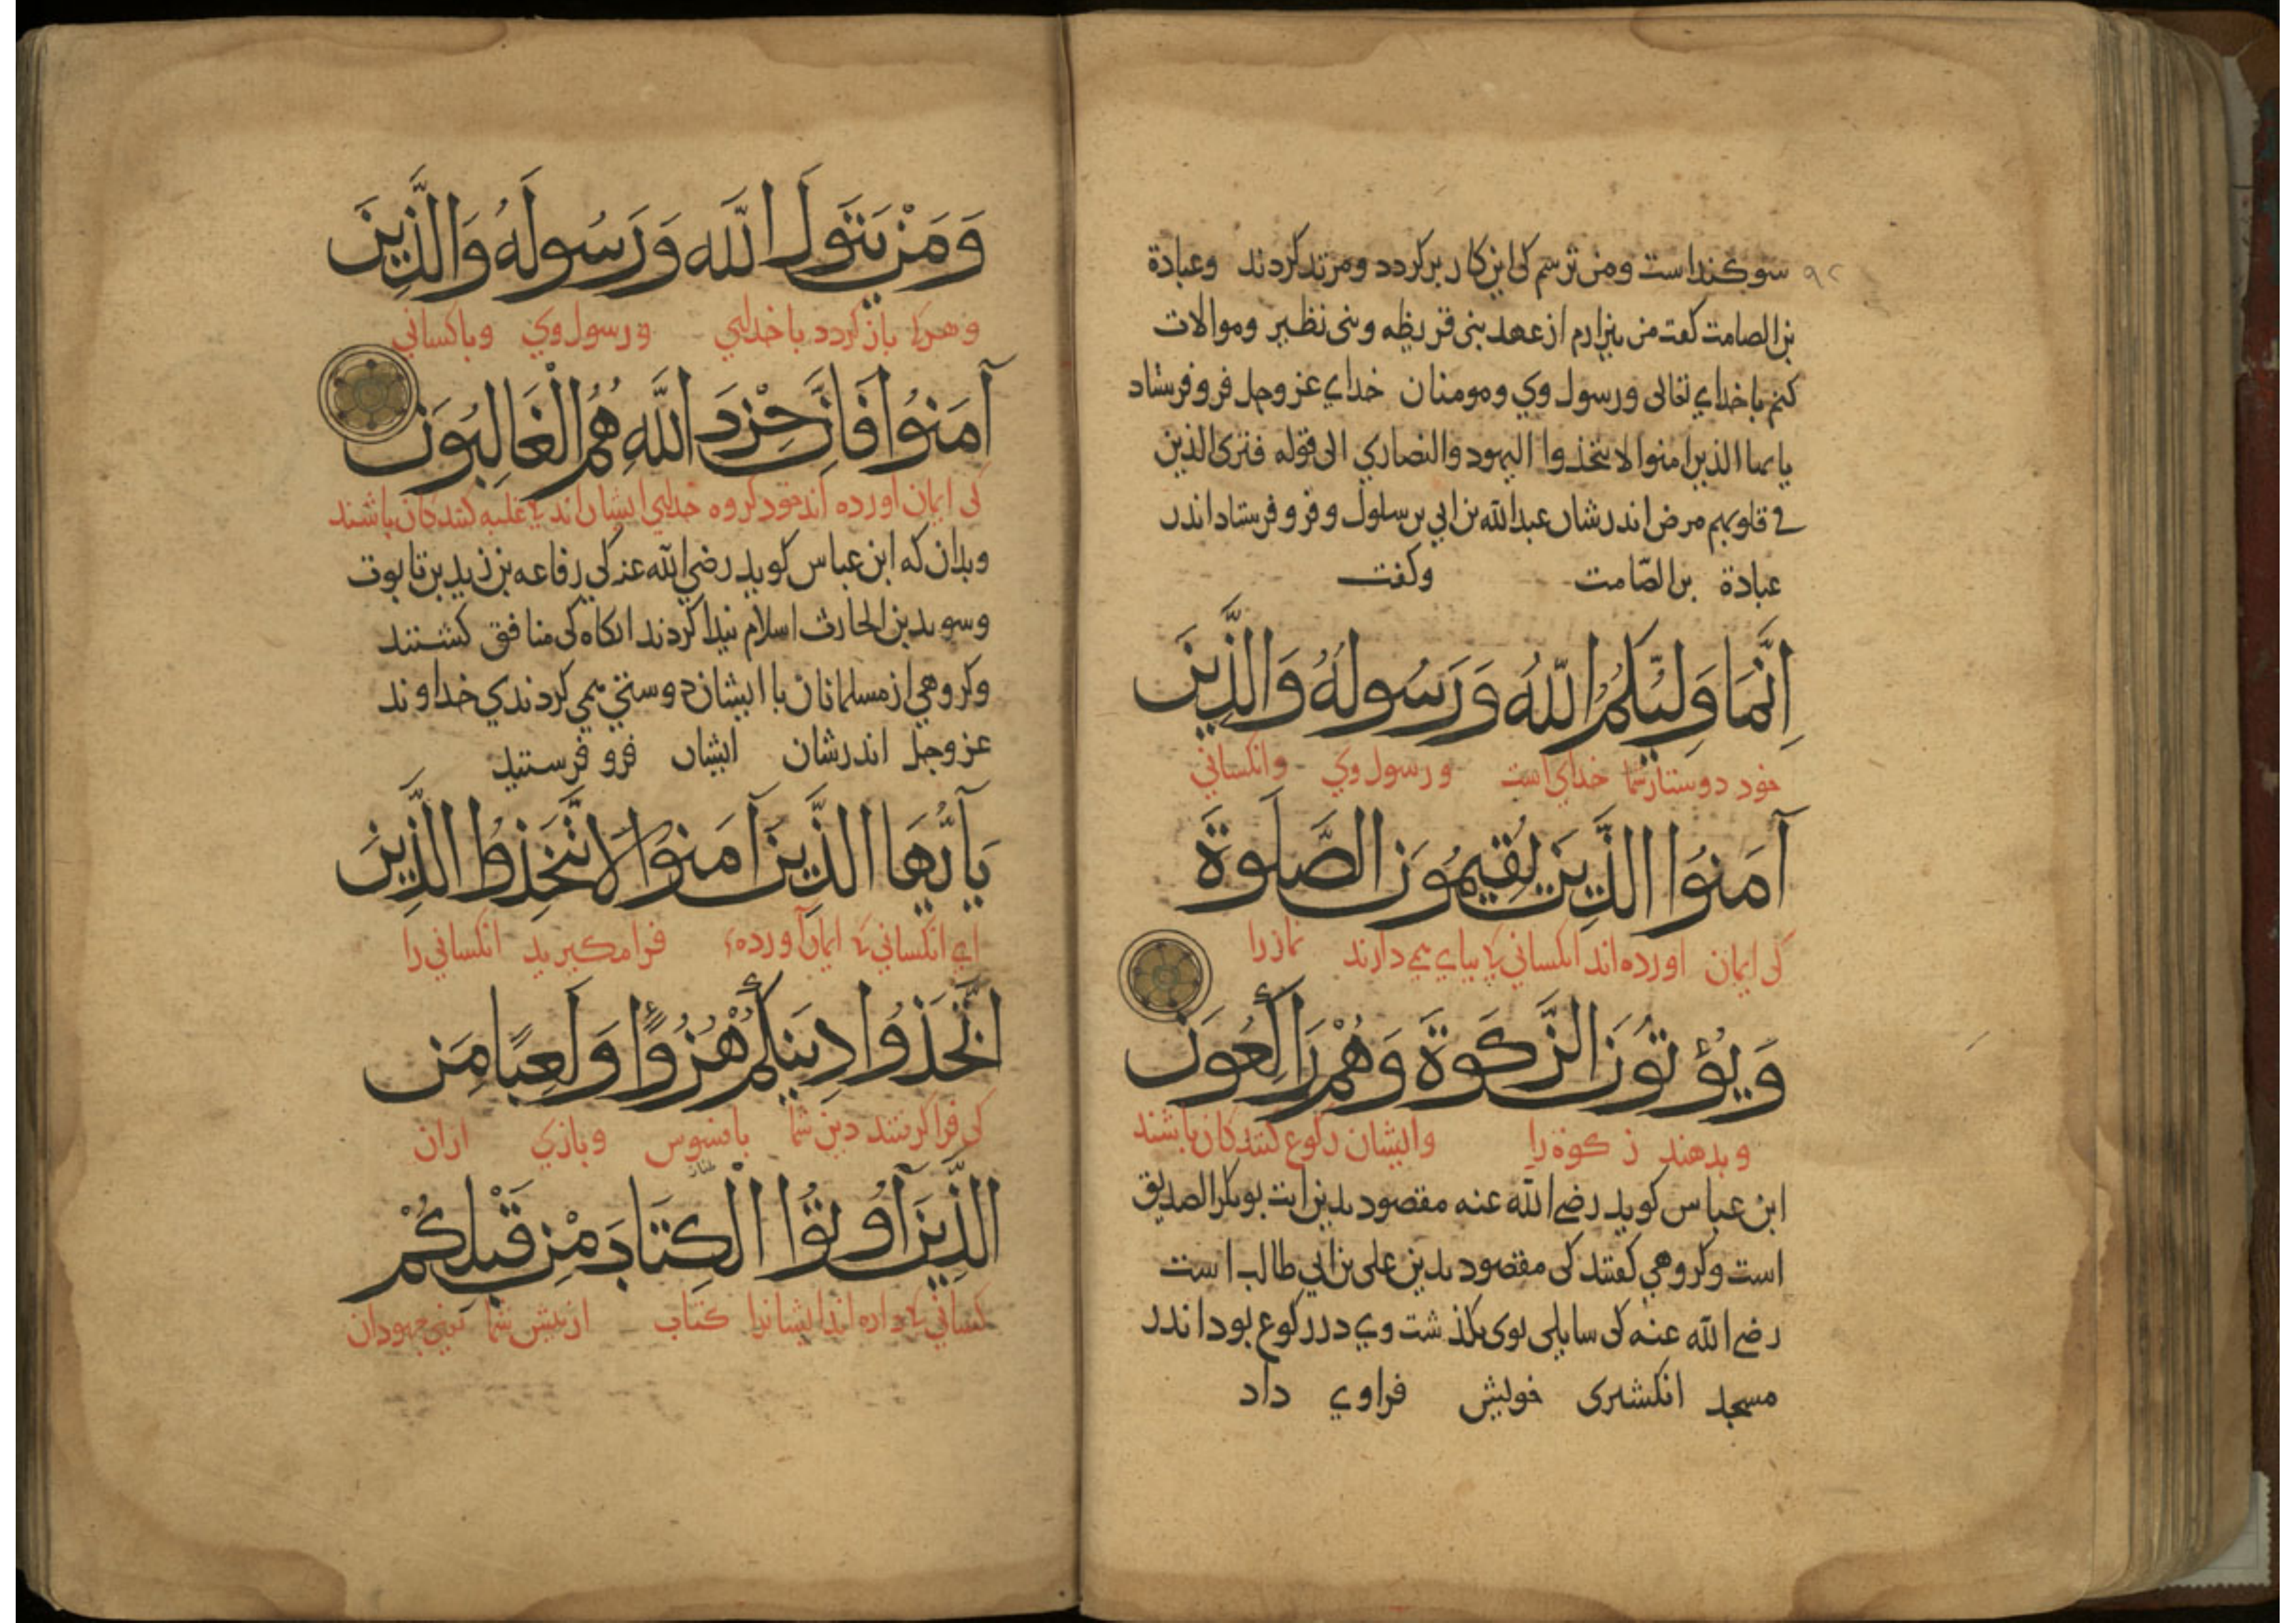 سوكنداست ومن ترسم كى اين كار بركردد ومرتد كردند وعبادة
بن الصامت كفت من بيزارم از عهد بنى قريظه وبنى نظير وموالات
كنم با خداي تعالى ورسول وي ومومنان خداي عز وجل فرو فرستاد
يا يها الذين امنوا لا تتخذوا اليهود والنصاري الى قوله فترى الذين
في قلوبهم مرض اندر شان عبد الله بن ابي بن سلول وفرو فرستاد اندر
عبادة بن الصّامت وكفت
اِنَّمَا وَلِيُّكُمُ اللّٰهُ وَرَسُولُهُ وَالَّذِينَ
خود دوستار شما خداي است ورسول وي وانكساني
آمَنُوا الَّذِينَ يُقِيمُونَ الصَّلَوةَ
كى ايمان اورده اند انكساني كه بپاي مي دارند نماز را
وَيُؤْتُونَ الزَّكَوةَ وَهُمْ رَاكِعُونَ
وبدهند زكوة را وايشان ركوع كنندكان باشند
ابن عباس كويد رضي الله عنه مقصود بدين ايت بوبكر الصديق
است وكروهي كفتند كى مقصود بدين على بن ابي طالب است
رضي الله عنه كى سايلى بوى بكذشت وي در ركوع بود اندر
مسجد انكشترى خويش فراوي داد
وَمَنْ يَتَوَلَّ اللَّهَ وَرَسُولَهُ وَالَّذِينَ
وهركه باز كردد با خداي ورسول وي وباكساني
آمَنُوا فَاِنَّ حِزْبَ اللَّهِ هُمُ الْغَالِبُونَ
كى ايمان اورده اند خود كروه خداي ايشان اند كه غلبه كنندكان باشند
وبدان كه ابن عباس كويد رضي الله عنه كى رفاعه بن زيد بن تابوت
وسويد بن الحارث اسلام پيدا كردند انكاه كى منافق كشتند
وكروهي از مسلمانان با ايشان دوستي مي كردندي خداوند
عز وجل اندر شان ايشان فرو فرستيد
يَا اَيُّهَا الَّذِينَ آمَنُوا لَا تَتَّخِذُوا الَّذِينَ
اي انكساني كه ايمان آورده فرا مكيريد انكساني را
اتَّخَذُوا دِينَكُمْ هُزُوًا وَلَعِبًا مِنَ
كى فرا كرفتند دين شما بافسوس وبازي ازان
الَّذِينَ اُوتُوا الْكِتَابَ مِنْ قَبْلِكُمْ
كساني كه داده اند ايشانرا كتاب از پيش شما يعني جهودان